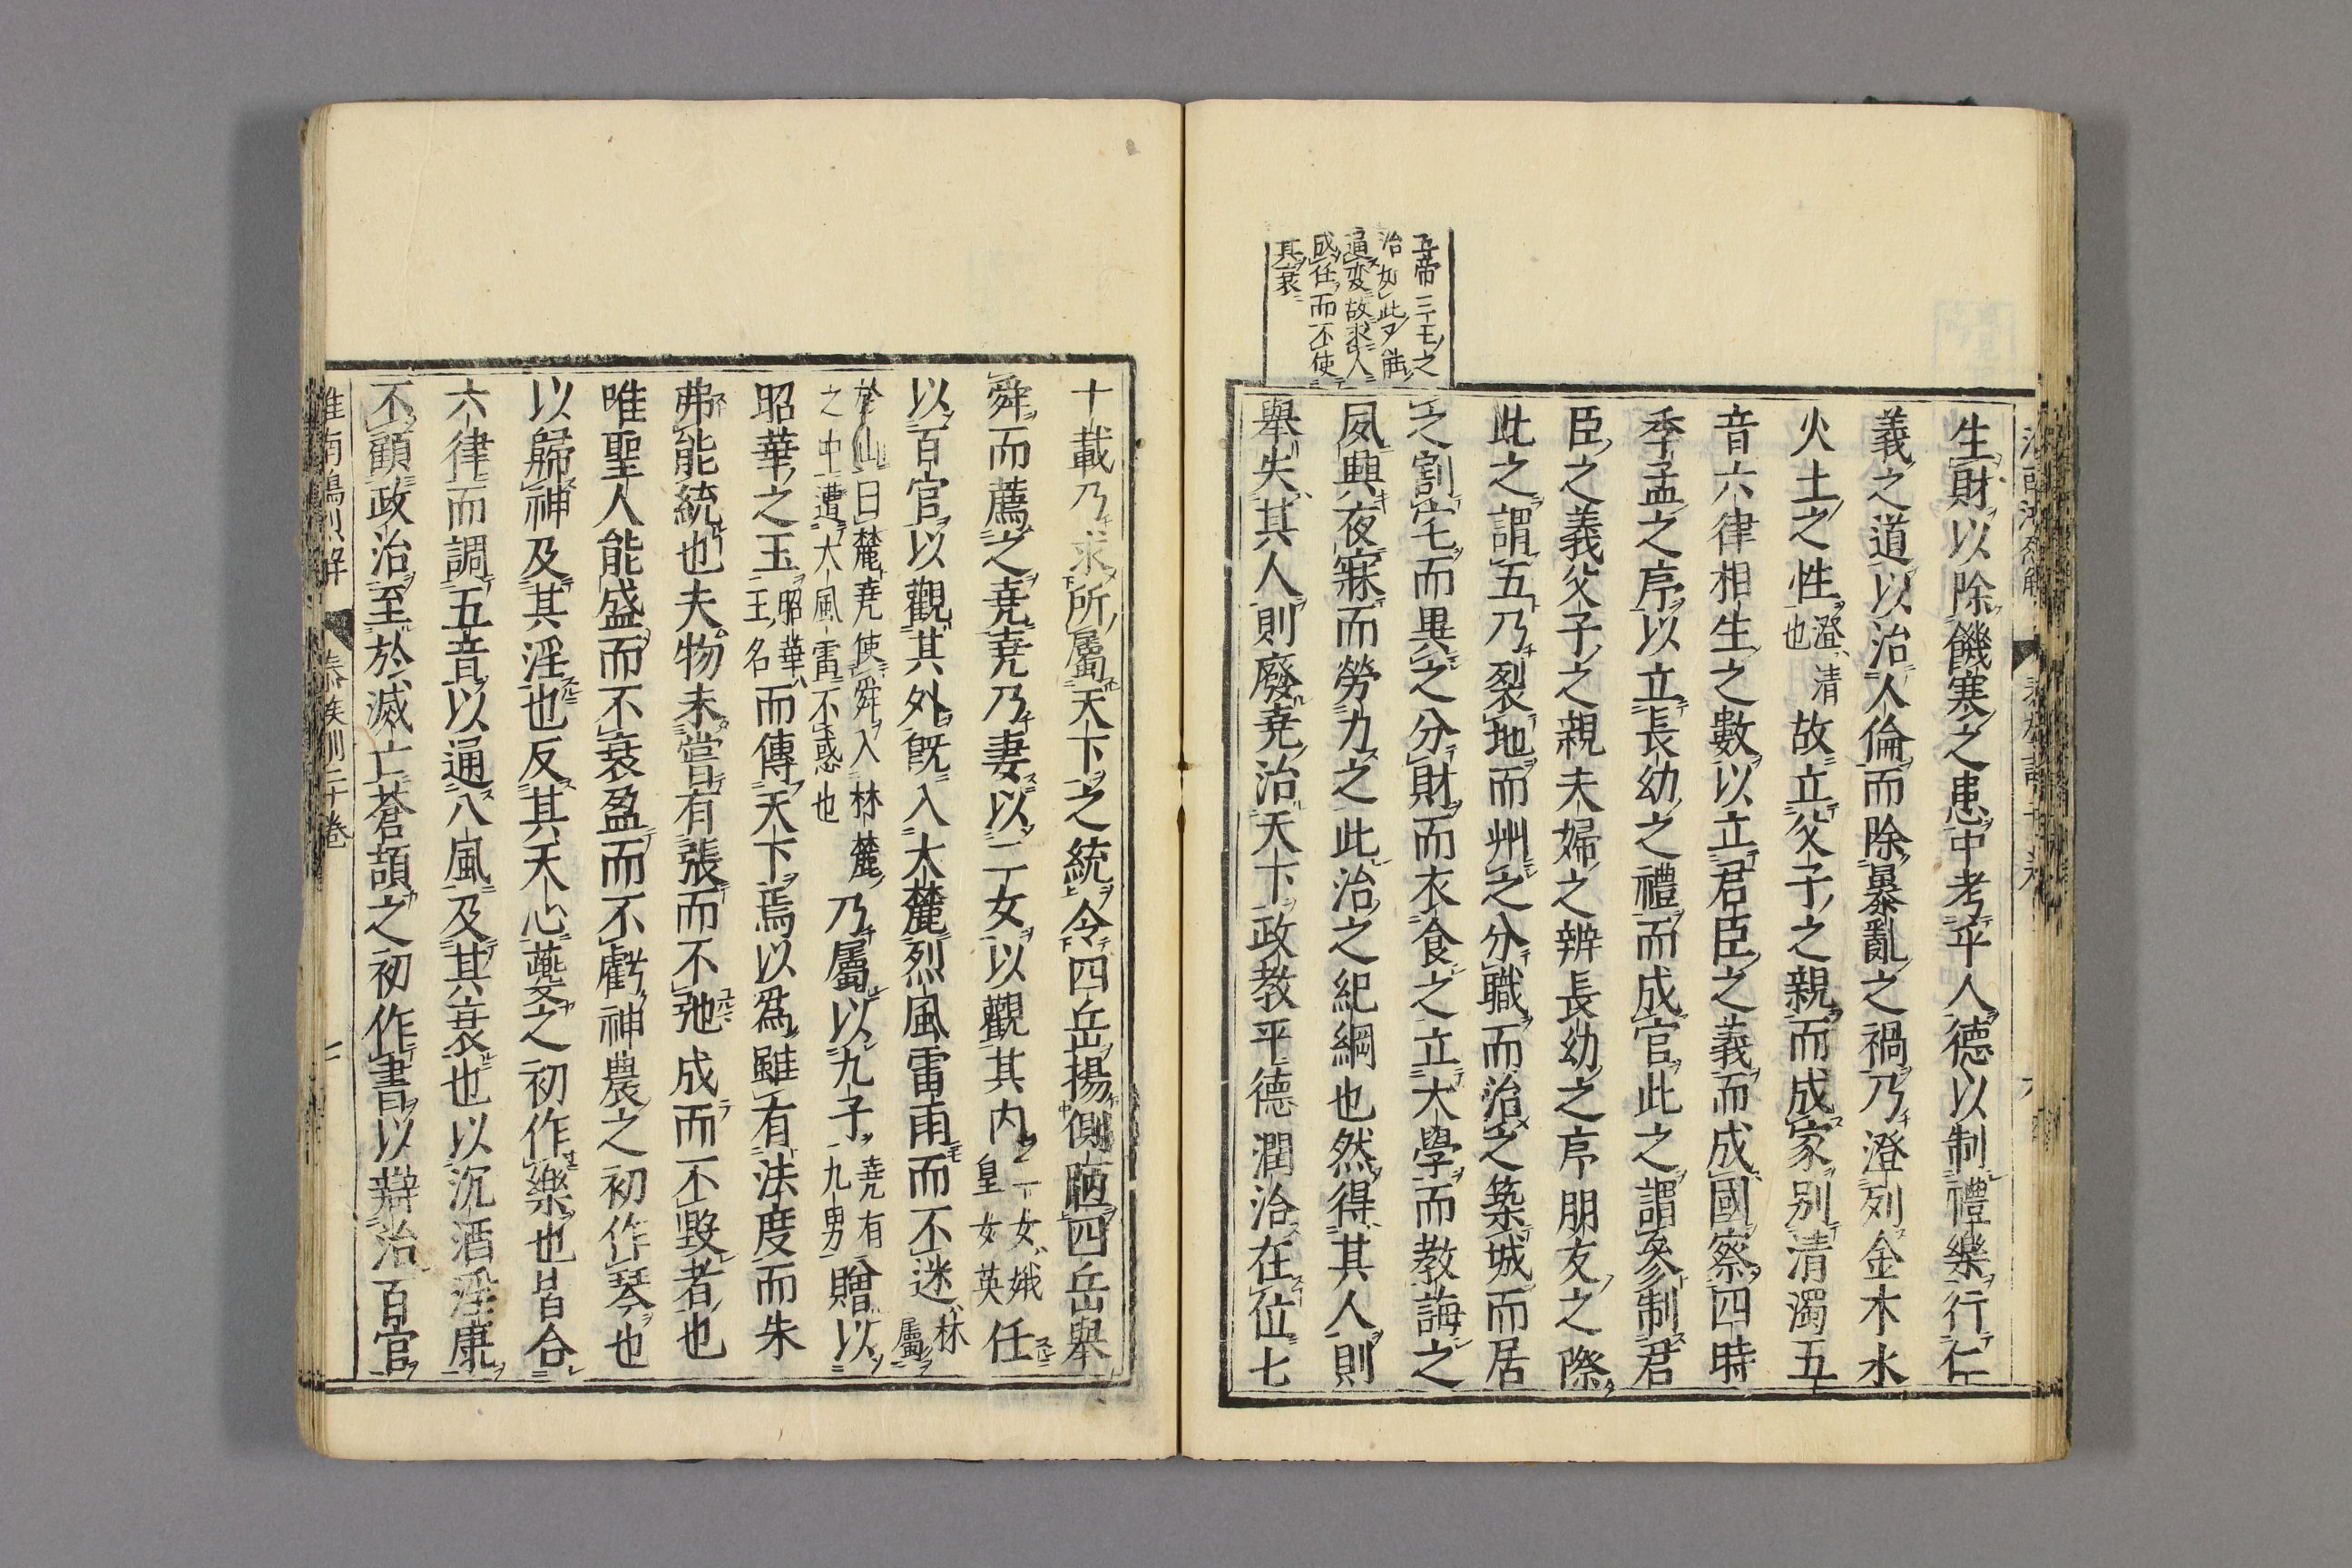 五帝三王之
治如此乃能
逼変故求人
成任而不使
其衰
生財以除饑寒之患中考乎人德以制禮樂行仁
義之道以治人倫而除暴亂之禍乃澄列金木水
火土之性澄清也故立父子之親而成家別清濁五
音六律相生之數以立君臣之義而成國察四時
季孟之序以立長幼之禮而成官此之謂參制君
臣之義父子之親夫婦之辨長幼之序朋友之際
此之謂五乃裂地而州之分職而治之築城而居
之割宅而異之分財而衣食之立大學而教誨之
夙興夜寐而勞力之此治之紀綱也然得其人則
舉失其人則廢堯治天下政教平德潤洽在位七
十載乃求所屬天下之統令四岳揚側陋四岳舉
舜而薦之堯堯乃妻以二女以觀其内二女娥皇女英任
以百官以觀其外既入大麓烈風雷雨而不迷林屬
於山曰麓堯使舜入林麓之中遭大風雷不惑也乃屬以九子堯有九男贈以
昭華之玉昭華玉名而傳天下焉以為雖有法度而朱
弗能統也夫物未嘗有張而不弛成而不毀者也
唯聖人能盛而不衰盈而不虧神農之初作琴也
以歸神及其淫也反其天心夔之初作樂也皆合
六律而調五音以通八風及其衰也以沉酒淫康
不顧政治至於滅亡蒼頡之初作書以辯治百官
淮南鴻烈解 泰族訓二十卷